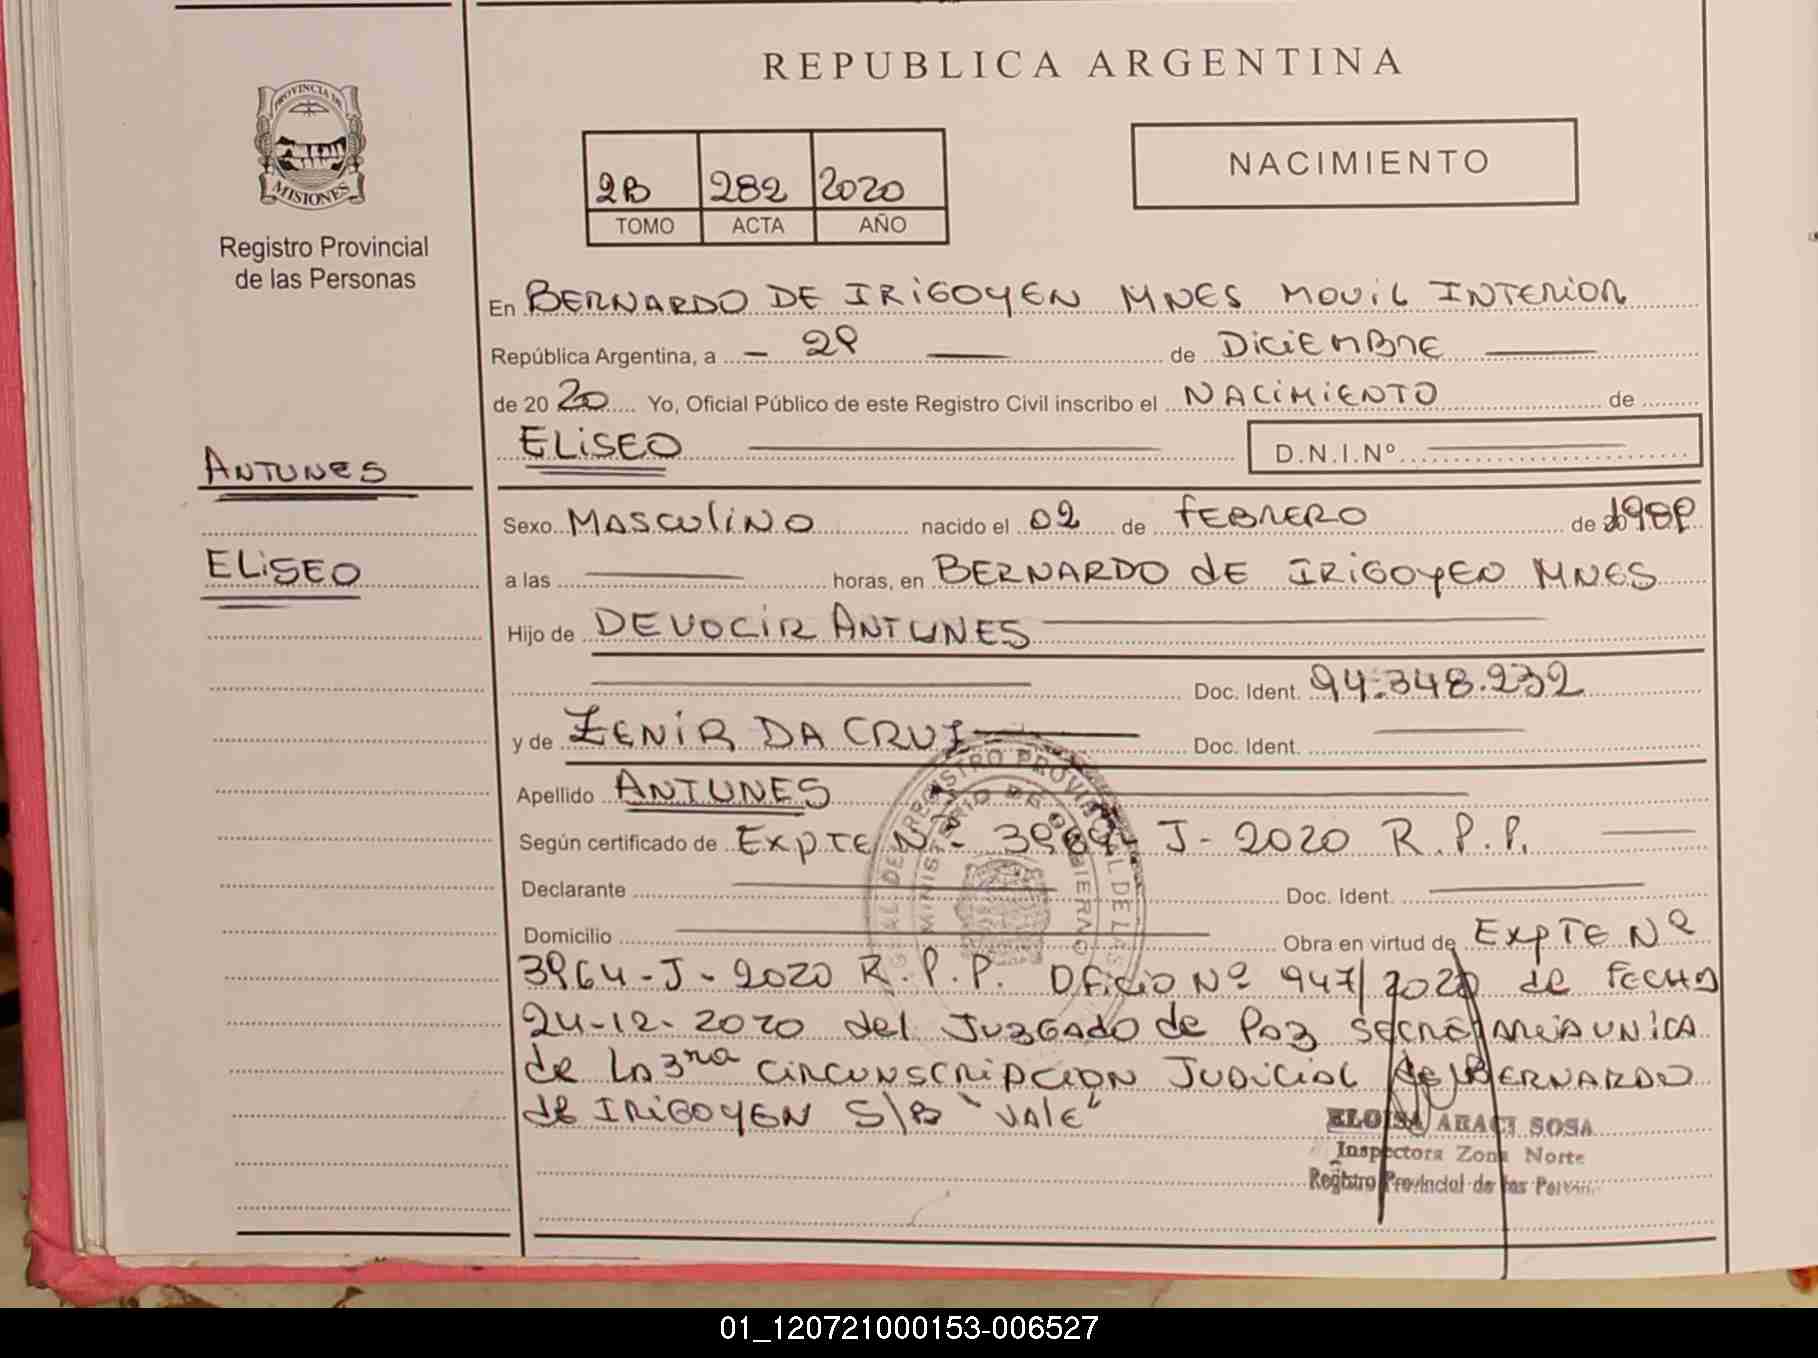 REPUBLICA ARGENTINA
PROVINCIA DE
MISIONES
Registro Provincial
de las Personas
NACIMIENTO
2B 282 2020
TOMO ACTA AÑO
En BERNARDO DE IRIGOYEN MNES MOVIL INTERIOR
República Argentina, a - 29 de DiciEMBRE
de 2020 Yo, Oficial Público de este Registro Civil inscribo el NACIMIENTO de
ELISEO D.N.I.Nº
ANTUNES
ELISEO
Sexo MASCULINO nacido el 02 de FEBRERO de 1989
a las horas, en BERNARDO dE IRIGOYEN MNES
Hijo de DEVOCIR ANTUNES
Doc. Ident. 94.348.232
y de ZENIR DA CRUZ Doc. Ident.
Apellido ANTUNES
Según certificado de EXPTE Nº 3964- J- 2020 R.P.P.
Declarante Doc. Ident.
Domicilio Obra en virtud de EXPTE Nº
3964-J-2020 R.P.P. OFICIO Nº 947/2020 de FECHA
24-12-2020 del JUZGADO de PAZ SECRETARIA UNICA
de LA 3ra CIRCUNSCRIPCION JUDICIAL de BERNARDO
de IRIGOYEN S/B "VALE"
ELOISA ARACI SOSA
Inspectora Zona Norte
Registro Provincial de las Person
01_120721000153-006527